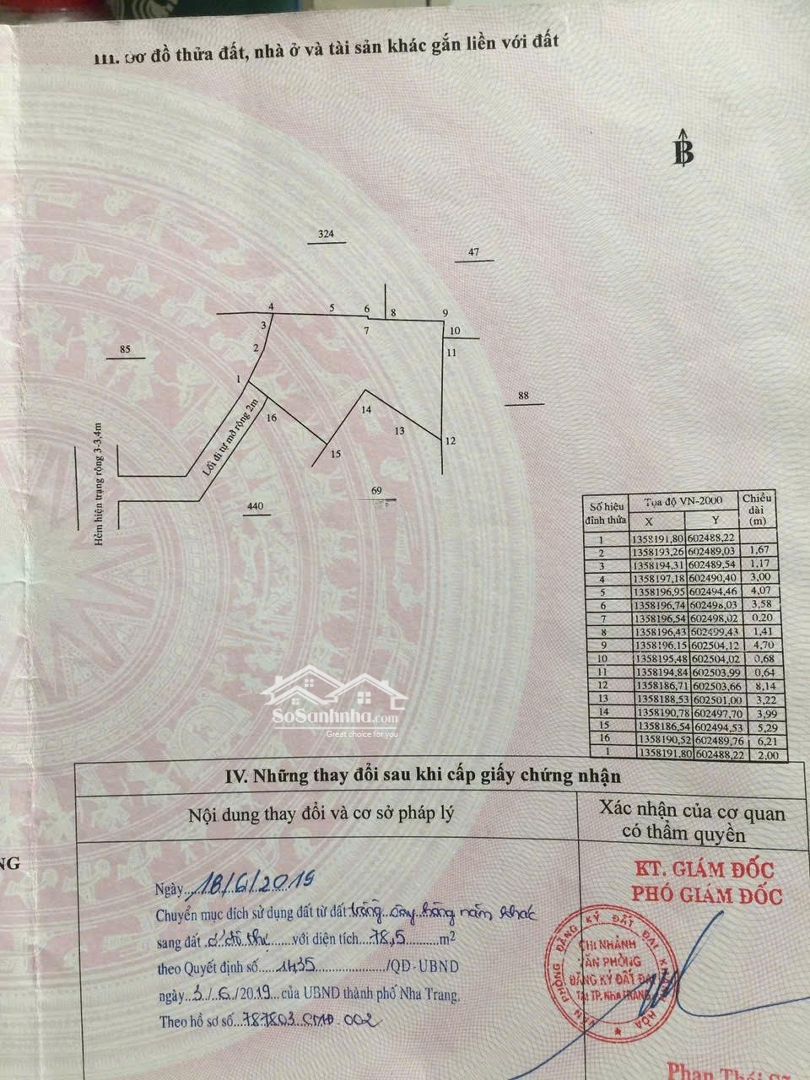 III. Sơ đồ thửa đất, nhà ở và tài sản khác gắn liền với đất
B
324
47
4
5
6
8
9
3
7
10
2
11
85
1
88
14
16
13
12
15
Lối đi tự mở rộng 2m
Hẻm hiện trạng rộng 3-3,4m
69
440
Số hiệu đỉnh thửa
Tọa độ VN-2000
Chiều dài (m)
X Y
1 1358191,80 602488,22
2 1358193,26 602489,03 1,67
3 1358194,31 602489,54 1,17
4 1358197,18 602490,40 3,00
5 1358196,95 602494,46 4,07
6 1358196,74 602498,03 3,58
7 1358196,54 602498,02 0,20
8 1358196,43 602499,43 1,41
9 1358196,15 602504,12 4,70
10 1358195,48 602504,02 0,68
11 1358194,84 602503,99 0,64
12 1358186,71 602503,66 8,14
13 1358188,53 602501,00 3,22
14 1358190,78 602497,70 3,99
15 1358186,54 602494,53 5,29
16 1358190,52 602489,76 6,21
1 1358191,80 602488,22 2,00
SoSanhnha.com
Great choice for you
IV. Những thay đổi sau khi cấp giấy chứng nhận
Nội dung thay đổi và cơ sở pháp lý
Xác nhận của cơ quan
có thẩm quyền
NG
KT. GIÁM ĐỐC
PHÓ GIÁM ĐỐC
Ngày 18/6/2019
Chuyển mục đích sử dụng đất từ đất trồng cây hằng năm khác
sang đất ở đô thị với diện tích 78,5 m2
theo Quyết định số 1435 /QĐ-UBND
ngày 3/6/2019 của UBND thành phố Nha Trang.
Theo hồ sơ số 787803.CMĐ.002
VĂN PHÒNG ĐĂNG KÝ ĐẤT ĐAI KHÁNH HÒA
CHI NHÁNH
VĂN PHÒNG
ĐĂNG KÝ ĐẤT ĐAI
TẠI TP. NHA TRANG
Phan Thái